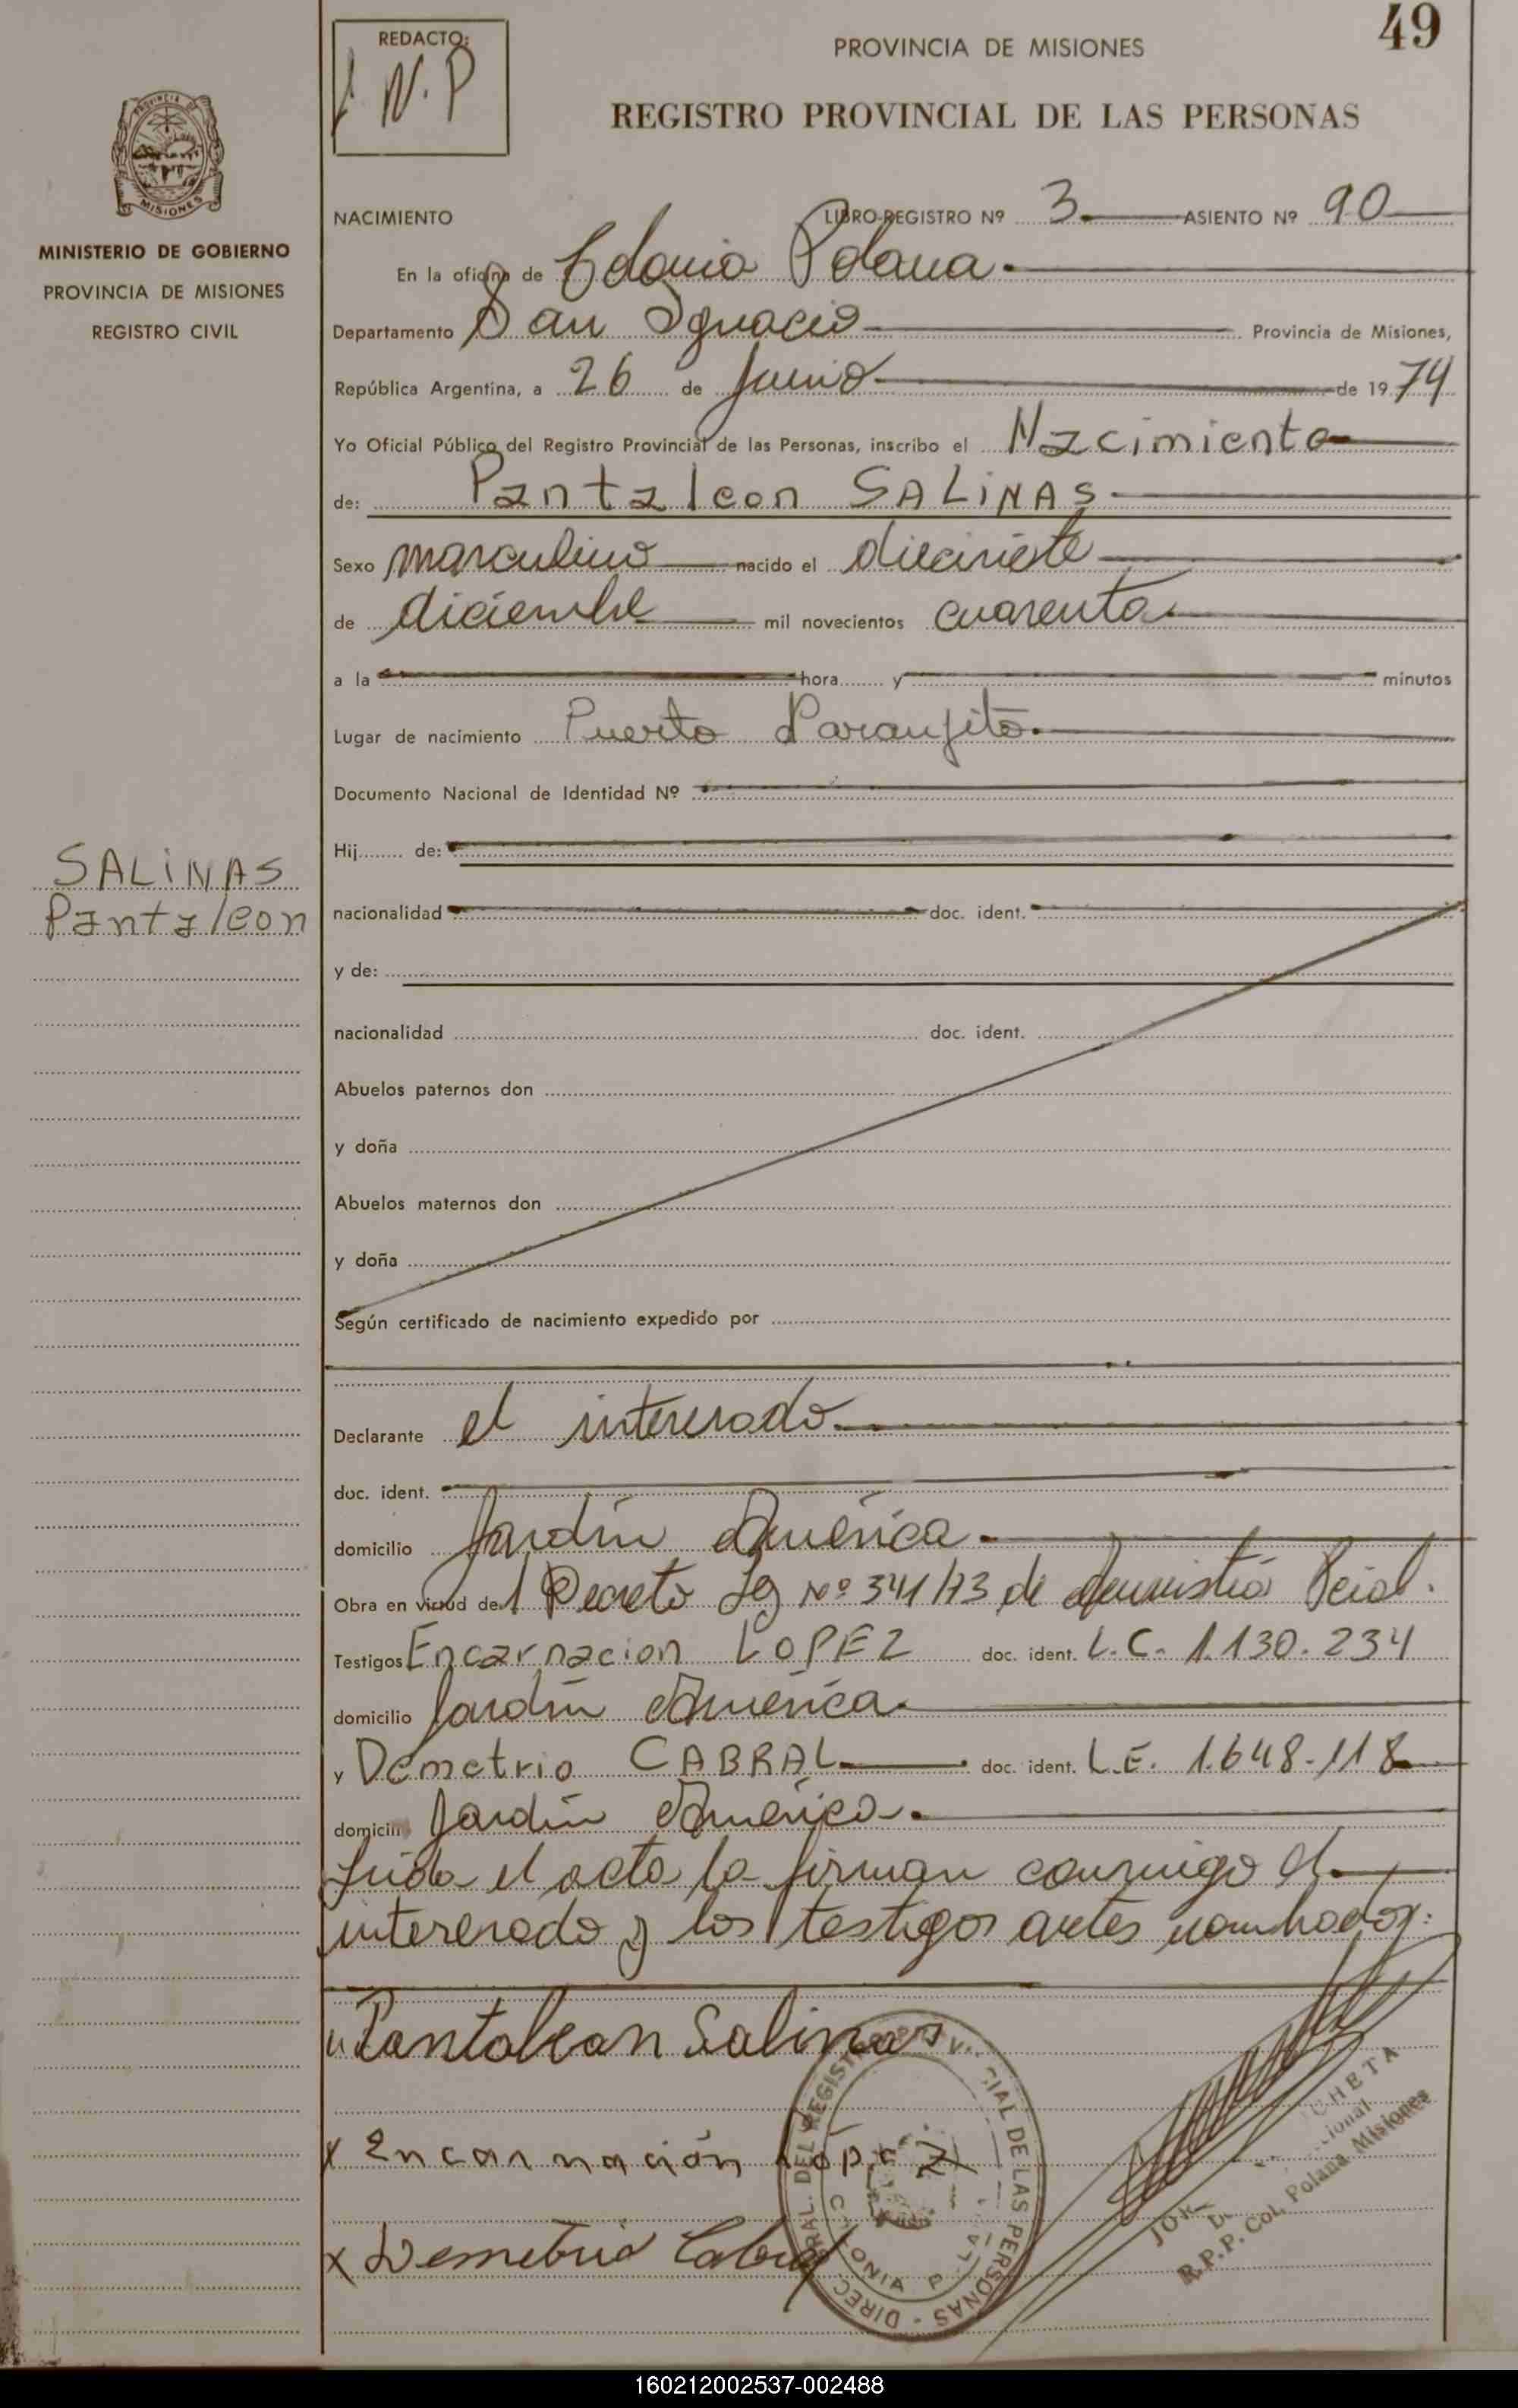 49
REDACTO:
N.P
PROVINCIA DE MISIONES
REGISTRO PROVINCIAL DE LAS PERSONAS
PROVINCIA DE
MISIONES
MINISTERIO DE GOBIERNO
PROVINCIA DE MISIONES
REGISTRO CIVIL
NACIMIENTO LIBRO-REGISTRO Nº 3 ASIENTO Nº 90
En la oficina de Colonia Polana.
Departamento San Ignacio Provincia de Misiones,
República Argentina, a 26 de Junio de 1974
Yo Oficial Público del Registro Provincial de las Personas, inscribo el Nacimiento
de: Pantaleon SALINAS
Sexo masculino nacido el diecisiete
de diciembre mil novecientos cuarenta
a la hora y minutos
Lugar de nacimiento Puerto Naranjito.
Documento Nacional de Identidad Nº
Hij de:
SALINAS
Pantaleon
nacionalidad doc. ident.
y de:
nacionalidad doc. ident.
Abuelos paternos don
y doña
Abuelos maternos don
y doña
Según certificado de nacimiento expedido por
Declarante el interesado
doc. ident.
domicilio Jardín América.
Obra en virtud del Decreto Ley Nº 341/73 de
Testigos Encarnacion LOPEZ doc. ident. L.C. 1.130.234
domicilio Jardín América
y Demetrio CABRAL doc. ident. L.E. 1.648.118
domicili Jardín América.
Leída el acta la firman conmigo el
interesado y los testigos antes nombrados:
Pantaleon Salinas
x Encarnación López
x Demetrio Cabral
DIREC RAL. DEL REGIST CIAL DE LAS PERSONAS
COLONIA P LA
CHETA
cional
R.P.P. Col. Polana Misiones
160212002537-002488